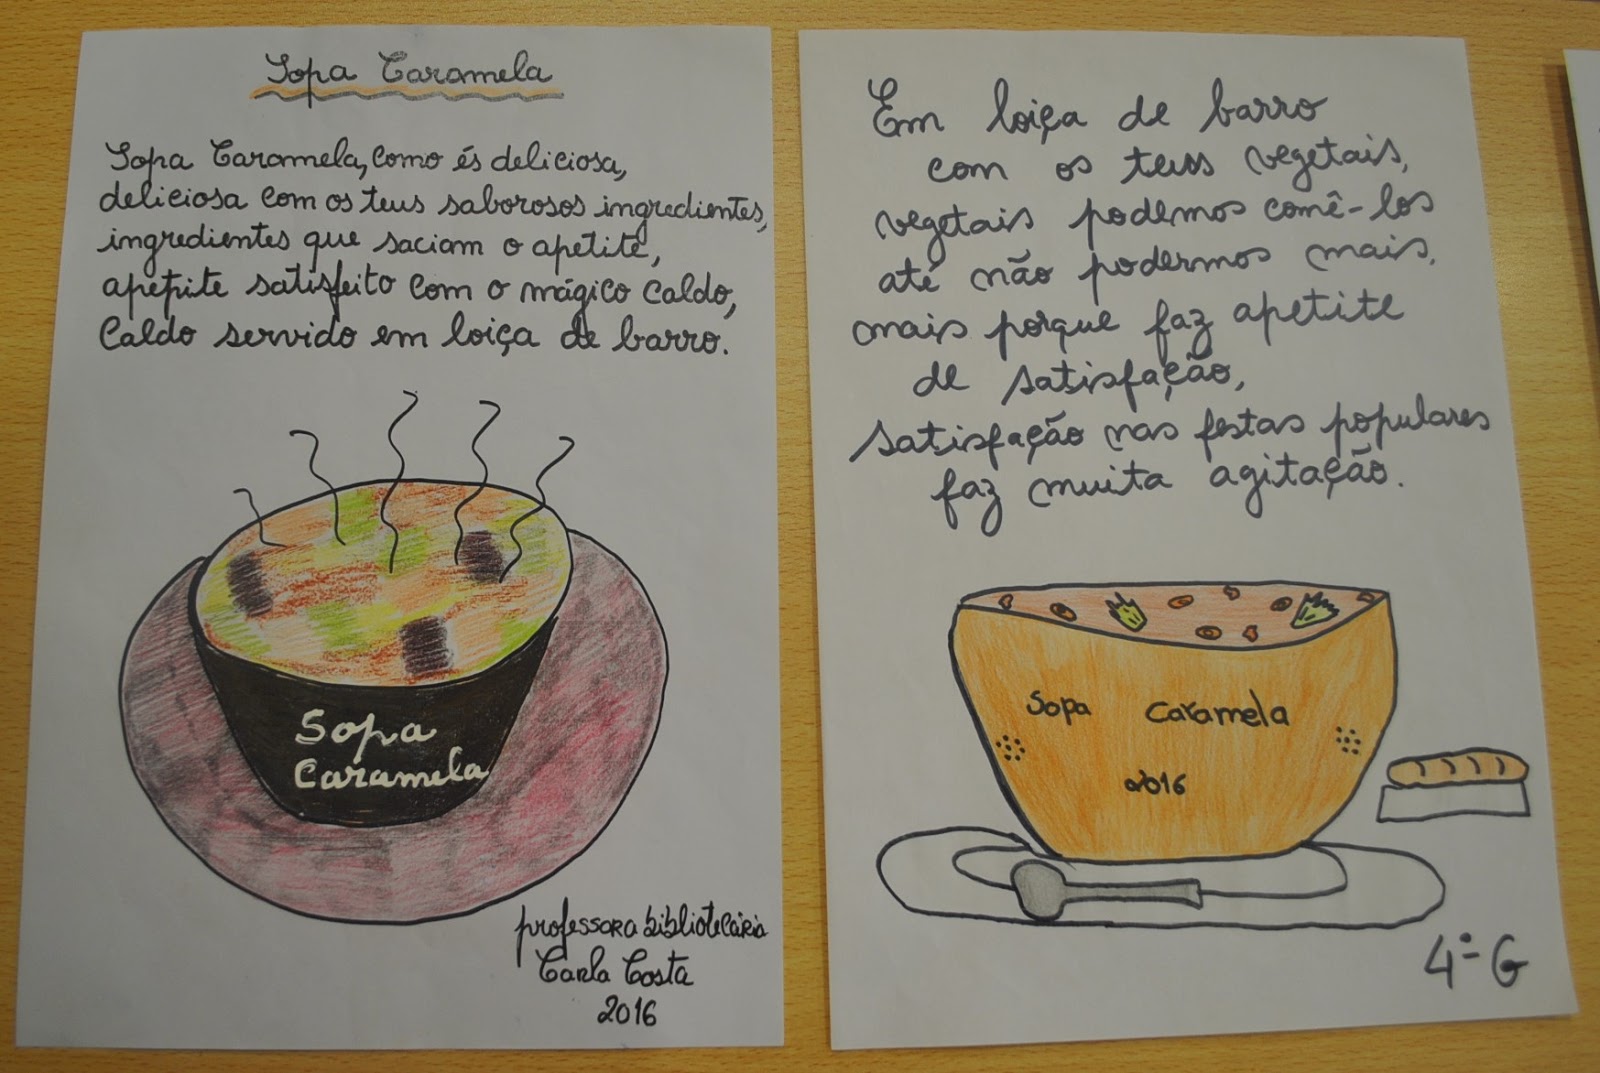 Sopa Caramela
Sopa Caramela, como és deliciosa,
deliciosa com os teus saborosos ingredientes,
ingredientes que saciam o apetite,
apetite satisfeito com o mágico caldo,
Caldo servido em loiça de barro.
Sopa
Caramela
professora bibliotecária
Carla Costa
2016
Em loiça de barro
com os teus vegetais,
vegetais podemos comê-los
até não podermos mais,
mais porque faz apetite
de satisfação,
satisfação nas festas populares
faz muita agitação.
Sopa Caramela
2016
4º G